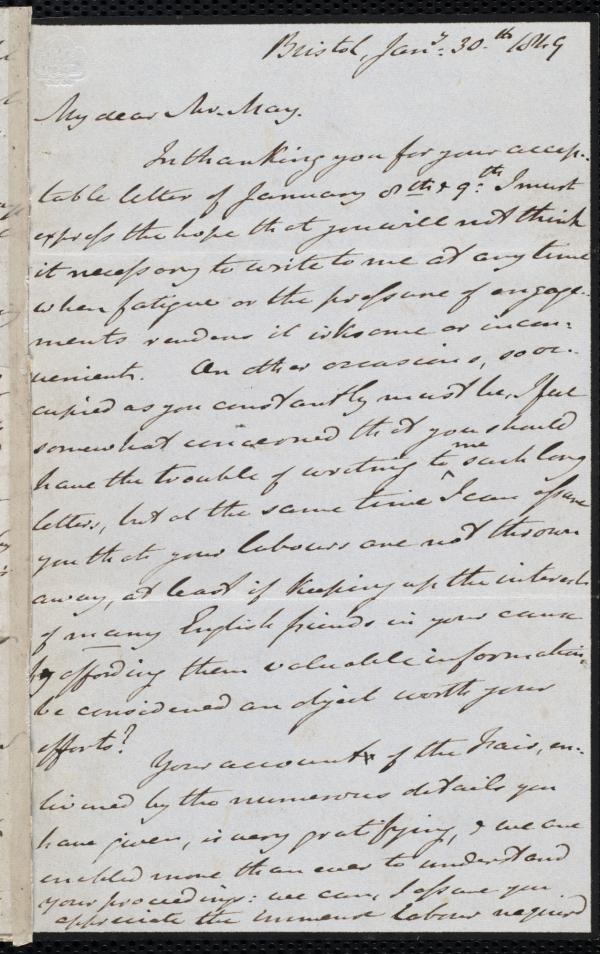 Bristol, Jany. 30.th 1849
My dear Mr. May.
In thanking you for your accep-
table letter of January 8th & 9.th I must
express the hope that you will not think
it necessary to write to me at any time
when fatigue or the pressure of engage-
ments renders it irksome or incon-
venient. On other occasions, so oc-
cupied as you constantly must be, I feel
somewhat concerned that you should
have the trouble of writing to me such long
letters, but at the same time I can assure
you that your labours are not thrown
away, at least if keeping up the interest
of many English friends in your cause
by affording them valuable information
be considered an object worth your
efforts?
Your account of the Fair, en-
livened by the numerous details you
have given, is very gratifying, & we are
enabled more than ever to understand
your proceedings: we can, I assure you
appreciate the immense labour required